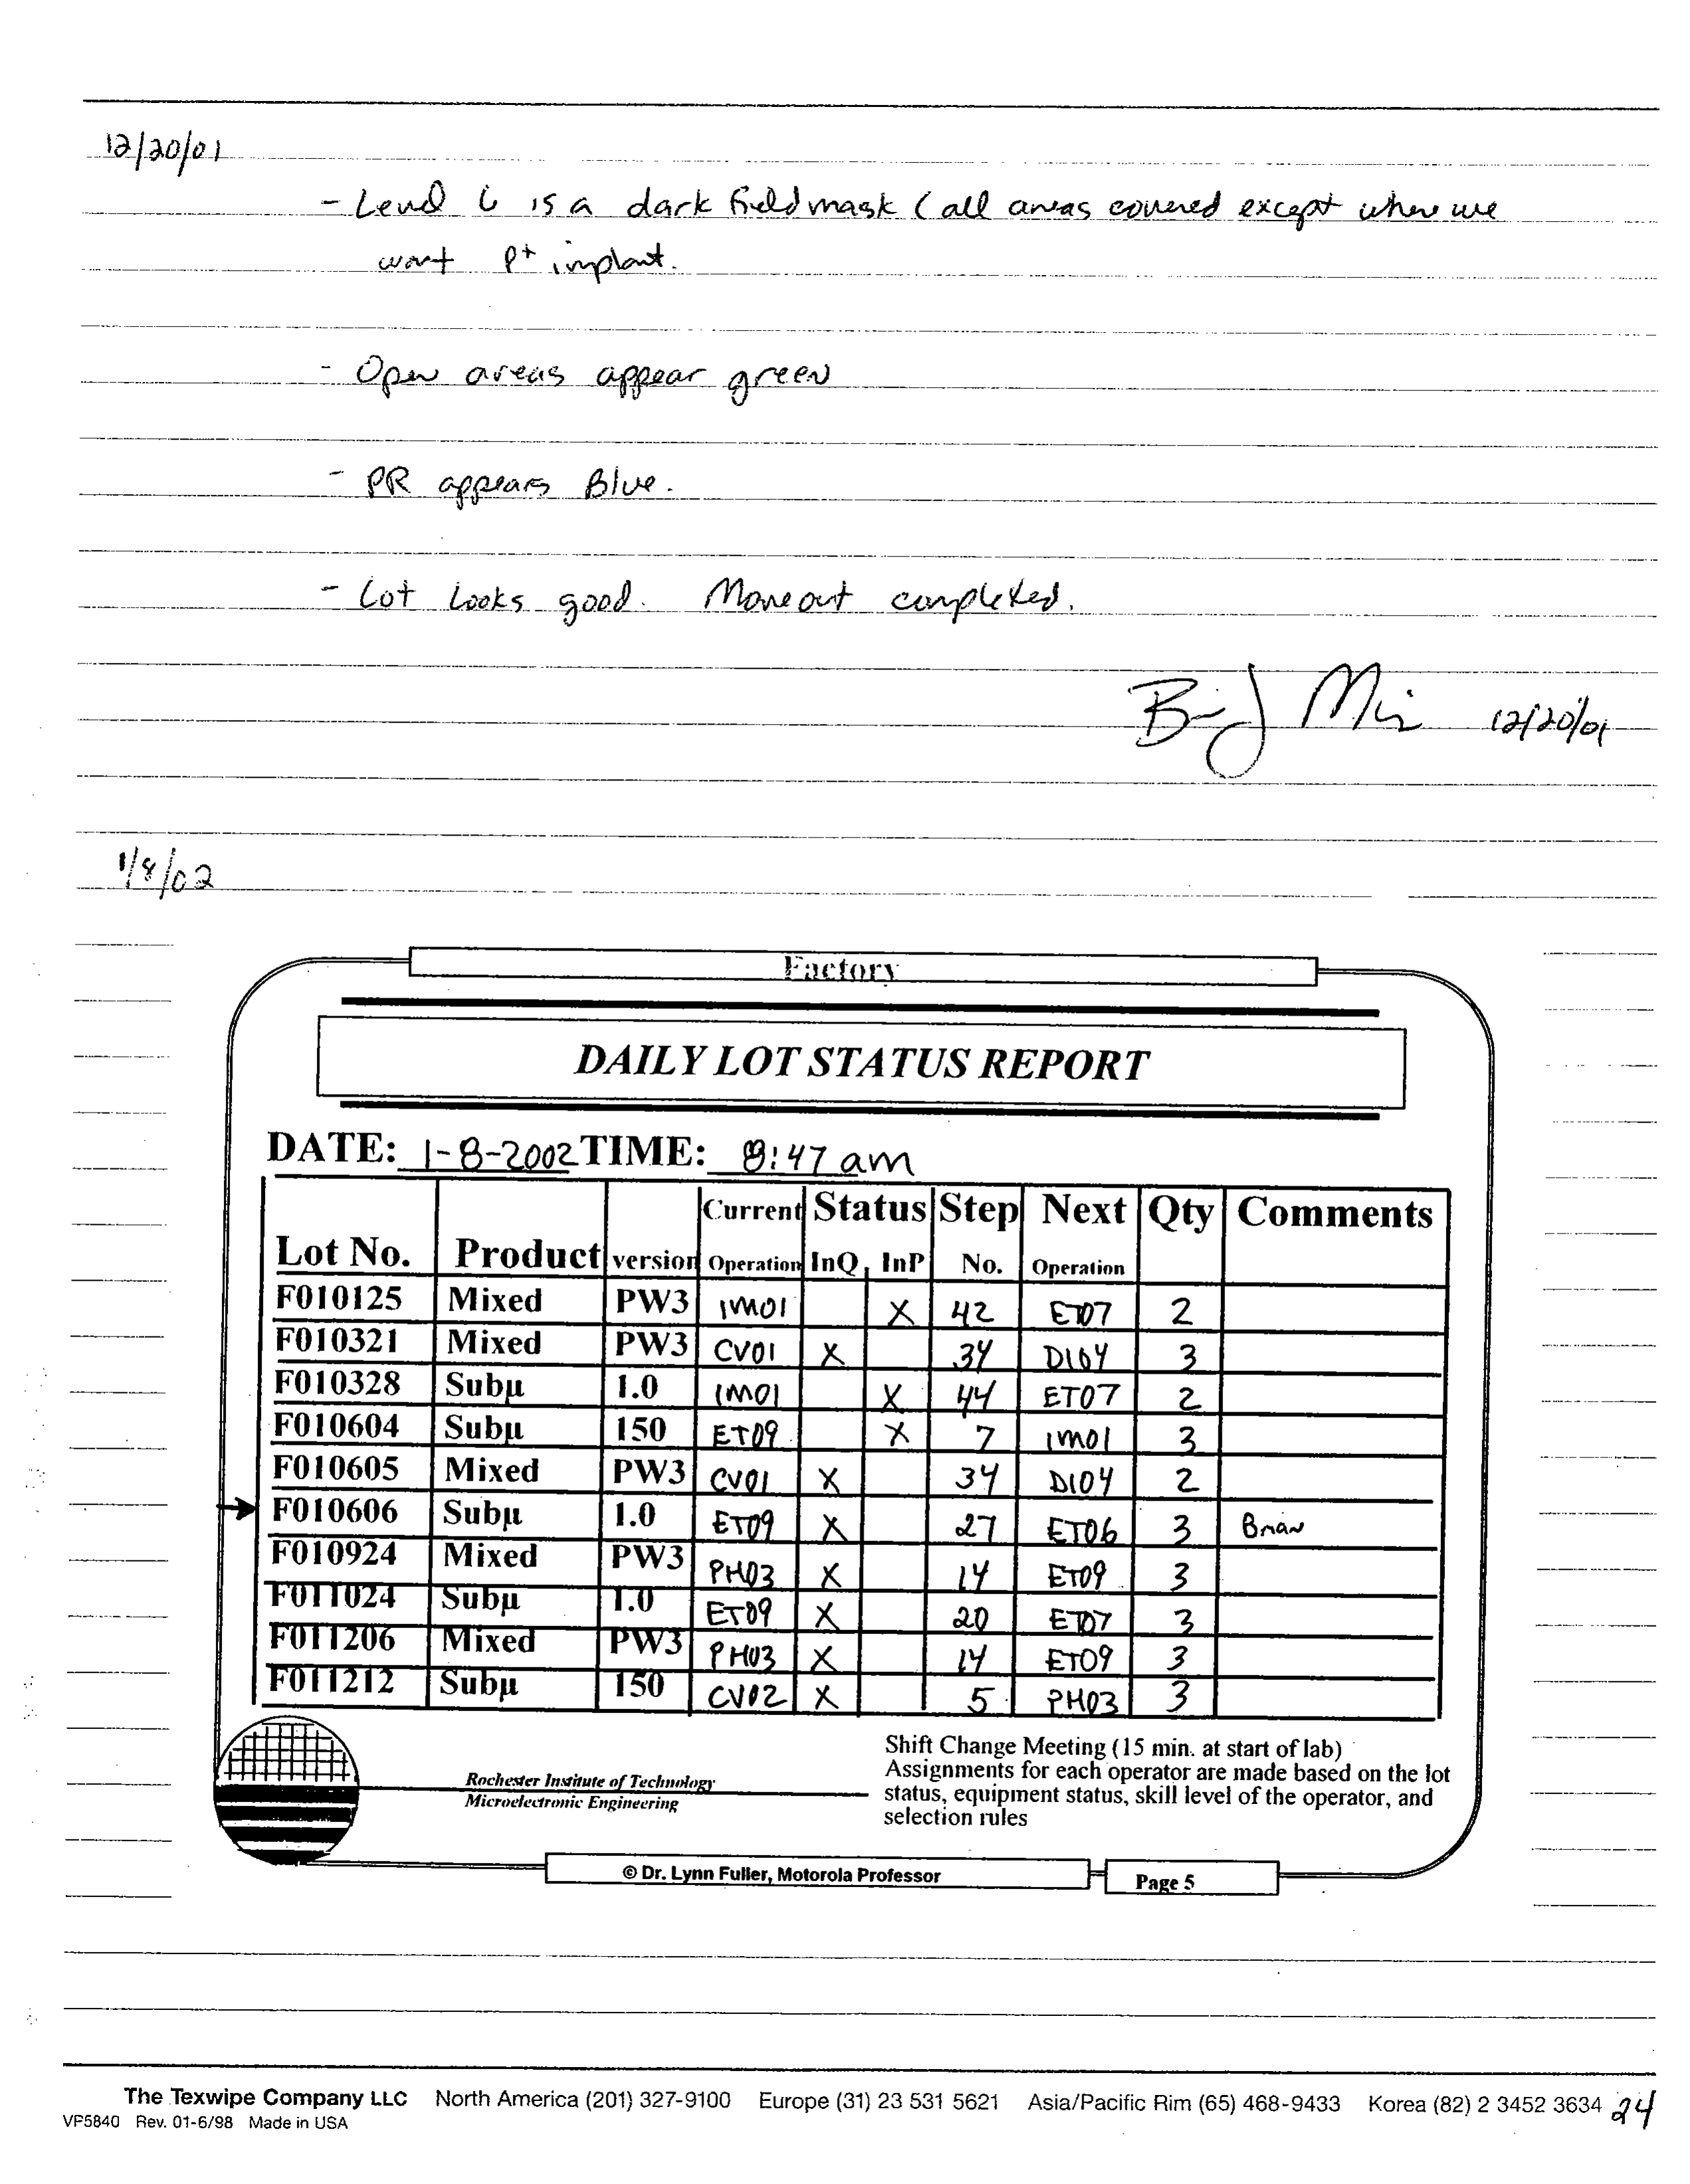 12/20/01
- Level 6 is a dark field mask (all areas covered except where we
want P+ implant.
- Open areas appear green
- PR appears Blue.
- Lot Looks good. Moveout completed.
12/20/01
1/8/02
Factory
DAILY LOT STATUS REPORT
DATE: 1-8-2002 TIME: 8:47 am
Lot No. Product version Current Operation Status InQ InP Step No. Next Operation Qty Comments
F010125 Mixed PW3 IM01 X 42 ET07 2
F010321 Mixed PW3 CV01 X 34 DI04 3
F010328 Subµ 1.0 IM01 X 44 ET07 2
F010604 Subµ 150 ET09 X 7 IM01 3
F010605 Mixed PW3 CV01 X 34 DI04 2
→ F010606 Subµ 1.0 ET09 X 27 ET06 3 Brian
F010924 Mixed PW3 PH03 X 14 ET09 3
F011024 Subµ 1.0 ET09 X 20 ET07 3
F011206 Mixed PW3 PH03 X 14 ET09 3
F011212 Subµ 150 CV02 X 5 PH03 3
Rochester Institute of Technology
Microelectronic Engineering
Shift Change Meeting (15 min. at start of lab)
Assignments for each operator are made based on the lot
status, equipment status, skill level of the operator, and
selection rules
© Dr. Lynn Fuller, Motorola Professor
Page 5
The Texwipe Company LLC North America (201) 327-9100 Europe (31) 23 531 5621 Asia/Pacific Rim (65) 468-9433 Korea (82) 2 3452 3634 24
VP5840 Rev. 01-6/98 Made in USA